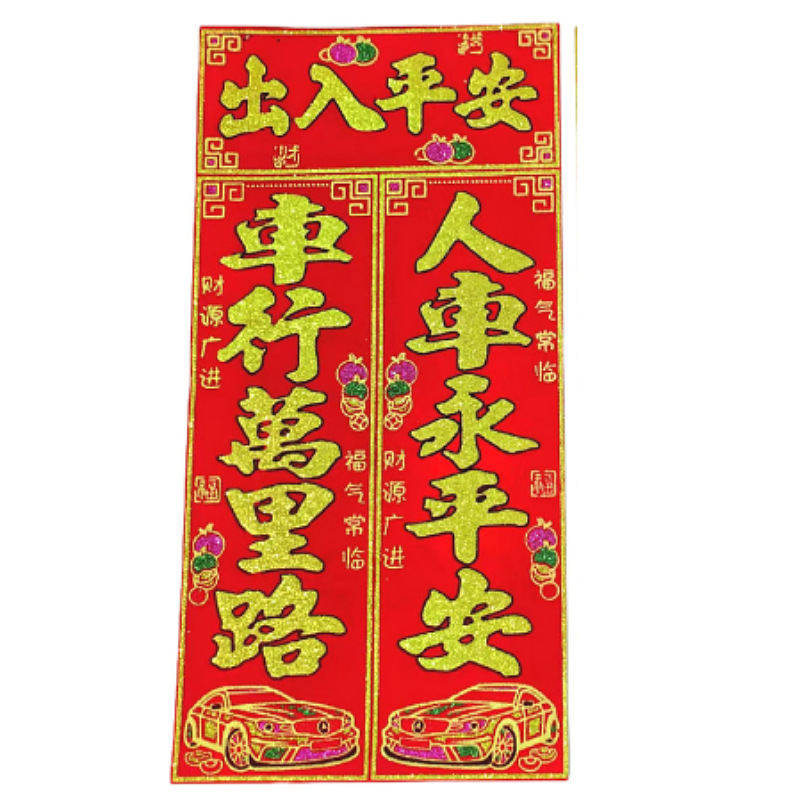 出入平安
車行萬里路
财源广进
福气常临
人車永平安
福气常临
财源广进